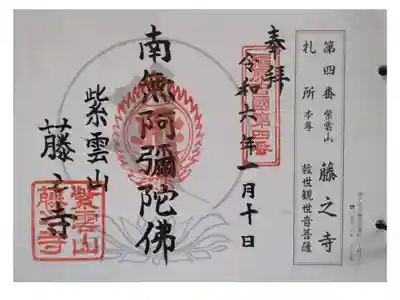 第四番 紫雲山 藤之寺
札所 本尊 救世観世音菩薩
奉拝
令和六年一月十日
南無阿彌陀佛
紫雲山
藤之寺
紫雲山
藤之寺